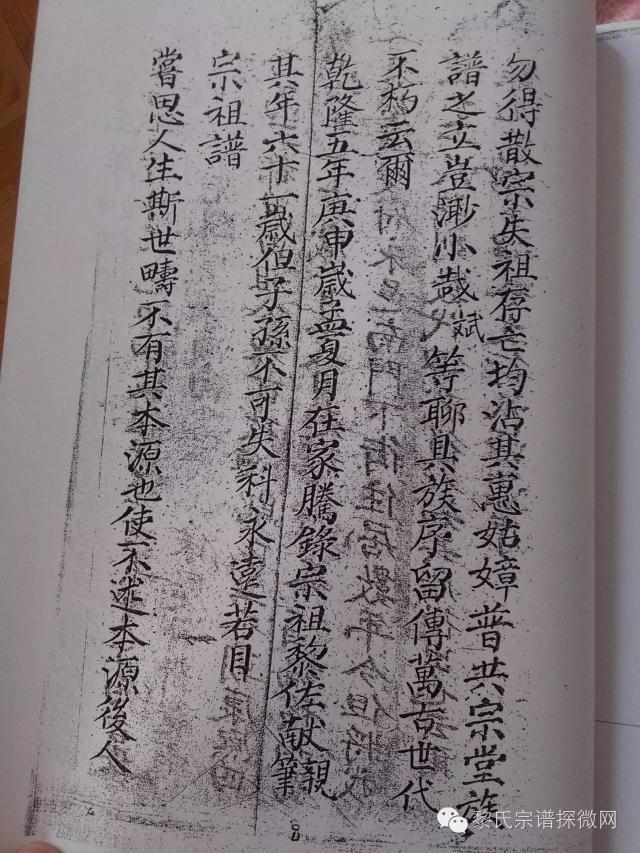 勿得散宗失祖存亡均沾其蕙姑嫜普共宗堂族
譜之立豈渺小哉斌等聊具族序留傳萬古世代
不朽云爾
乾隆五年庚申歲孟夏月在家騰錄宗祖黎佐献親筆
其年六十一歲但子孫不可失科永遠若目
宗祖譜
嘗思人生斯世疇不有其本源也使不述本源後人
黎氏宗谱探微网